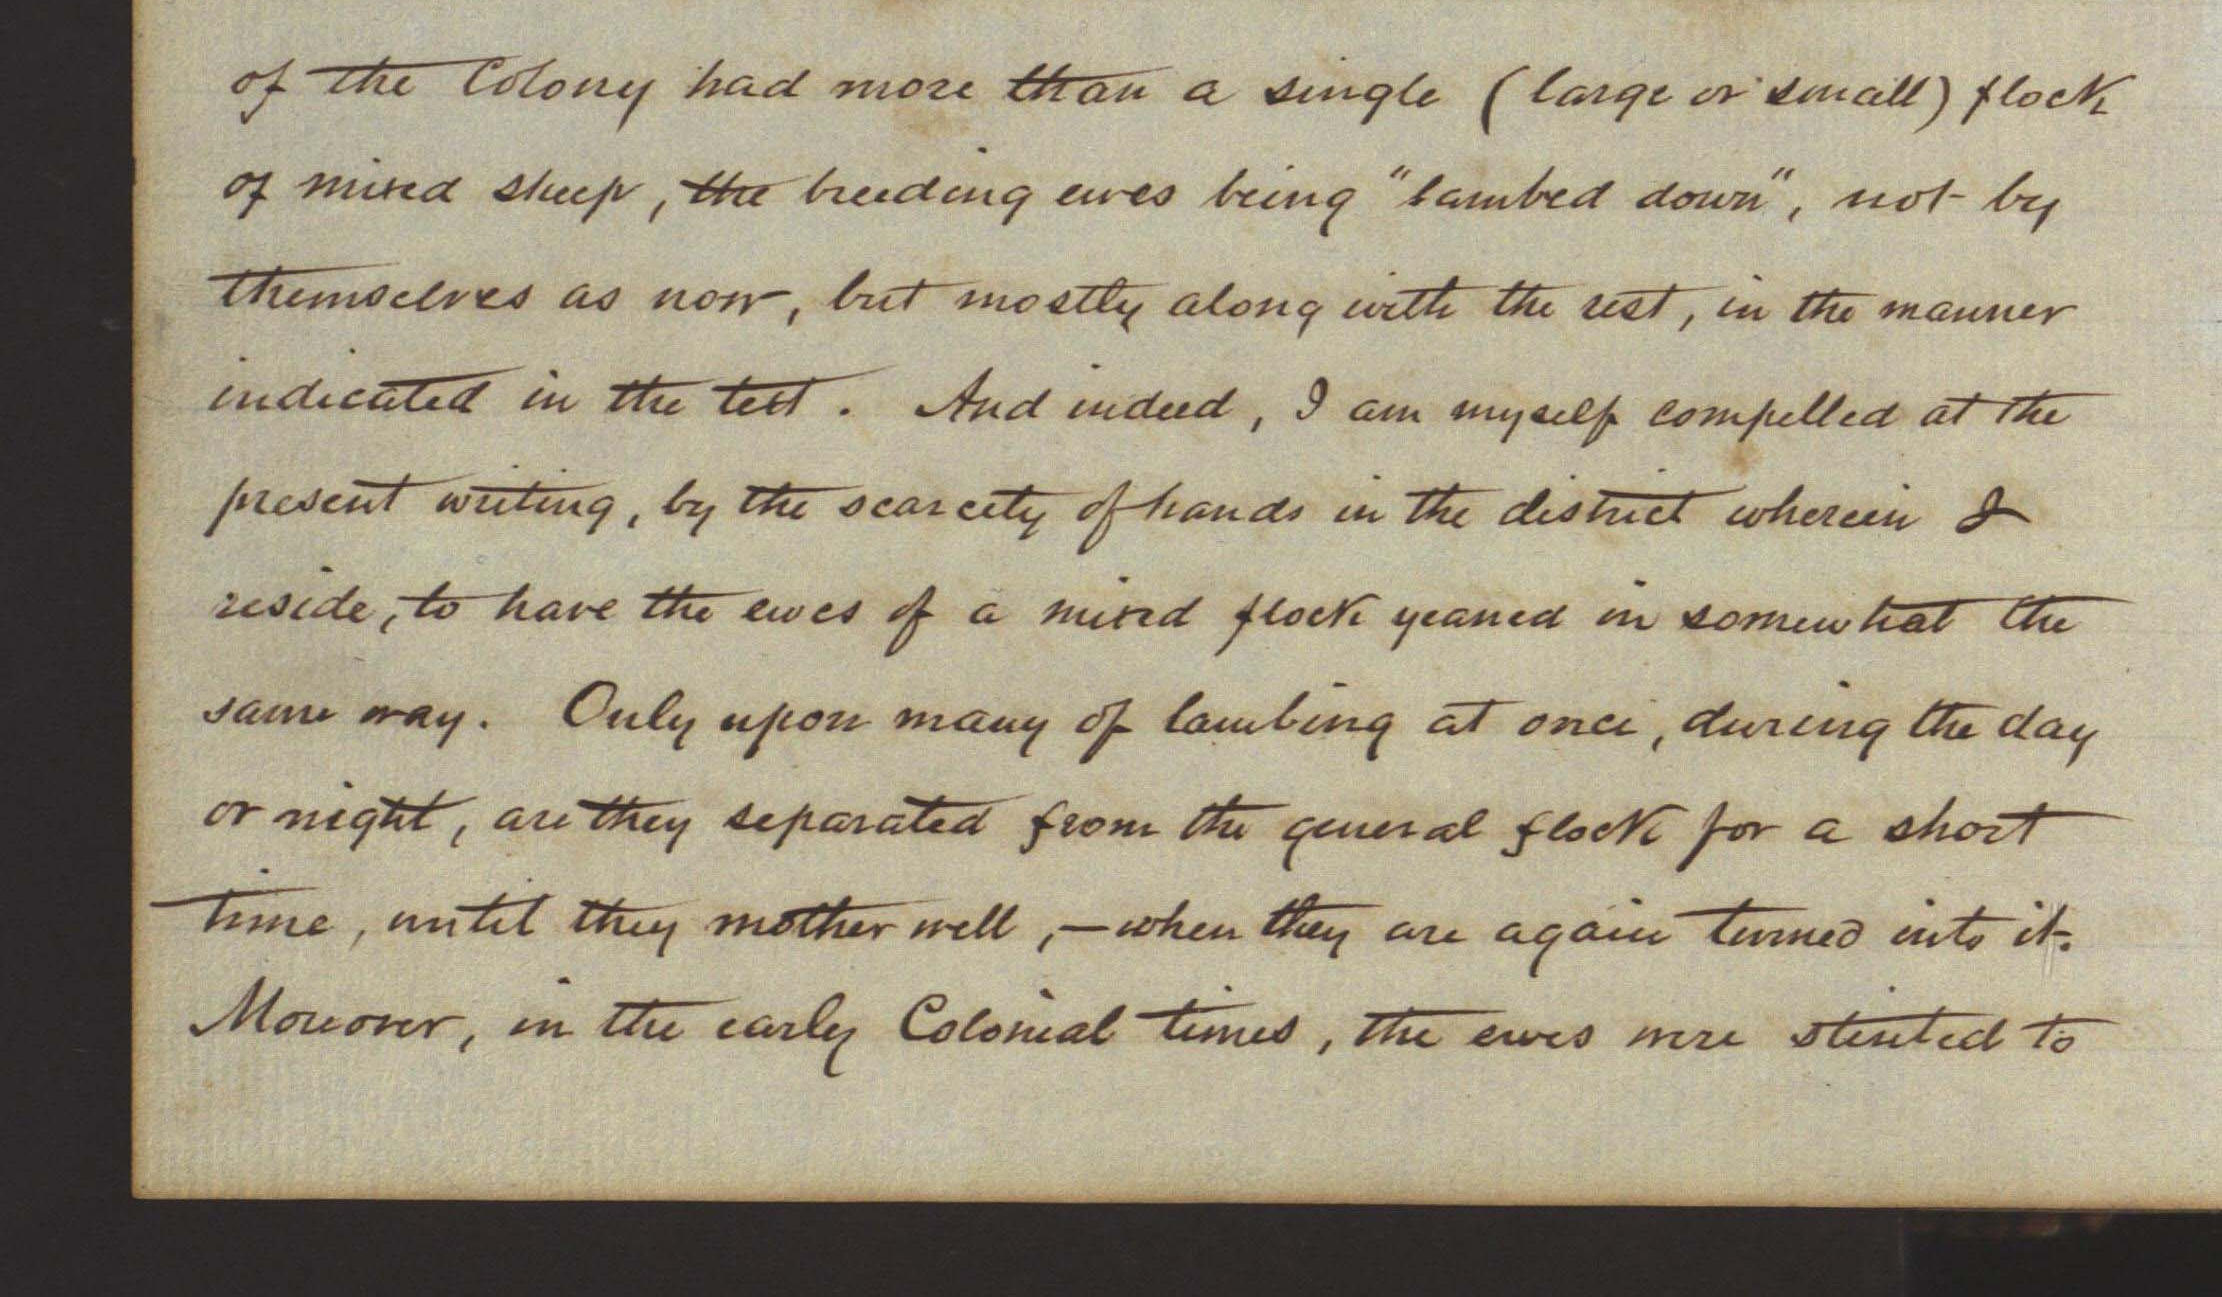 of the Colony had more than a single (large or small) flock
of mixed sheep, the breeding ewes being "lambed down", not by
themselves as now, but mostly along with the rest, in the manner
indicated in the text. And indeed, I am myself compelled at the
present writing, by the scarcity of hands in the district wherein I
reside, to have the ewes of a mixed flock yeaned in somewhat the
same way. Only upon many of lambing at once, during the day
or night, are they separated from the general flock for a short
time, until they mother well, — when they are again turned into it.
Moreover, in the early Colonial times, the ewes were stinted to